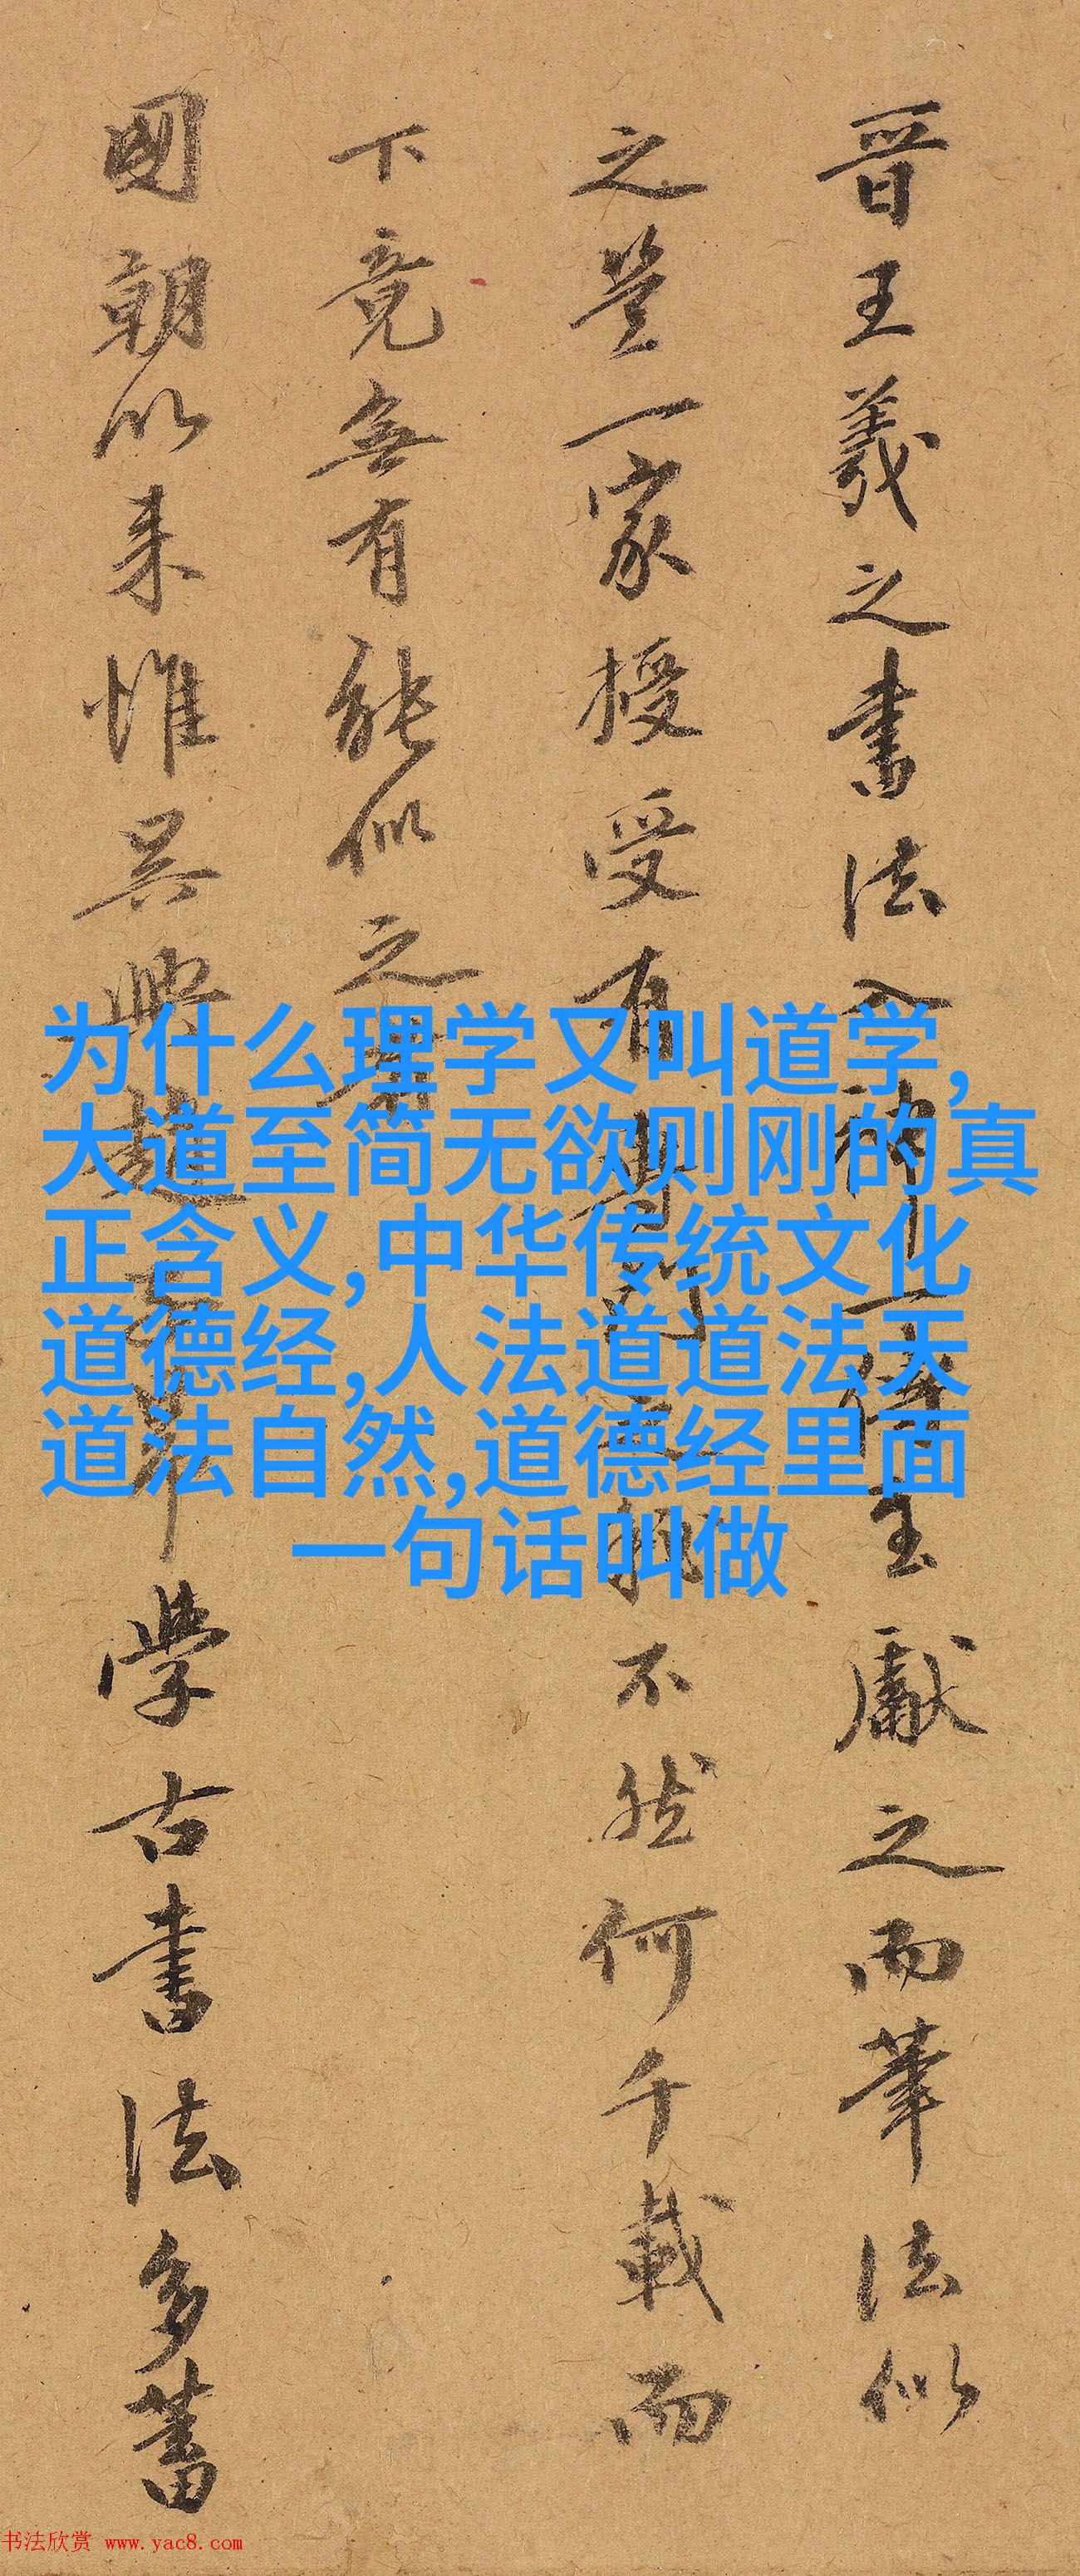 晋王羲之書法入神一傳至獻之而筆法似
之豈一家授受有專門之不然何千載而
下竟無有能似之者
國朝以来惟吳興趙子昂學古書法多蓄
为什么理学又叫道学,
大道至简无欲则刚的真
正含义,中华传统文化
道德经,人法道道法天
道法自然,道德经里面
一句话叫做
书法欣赏 www.yac8.com